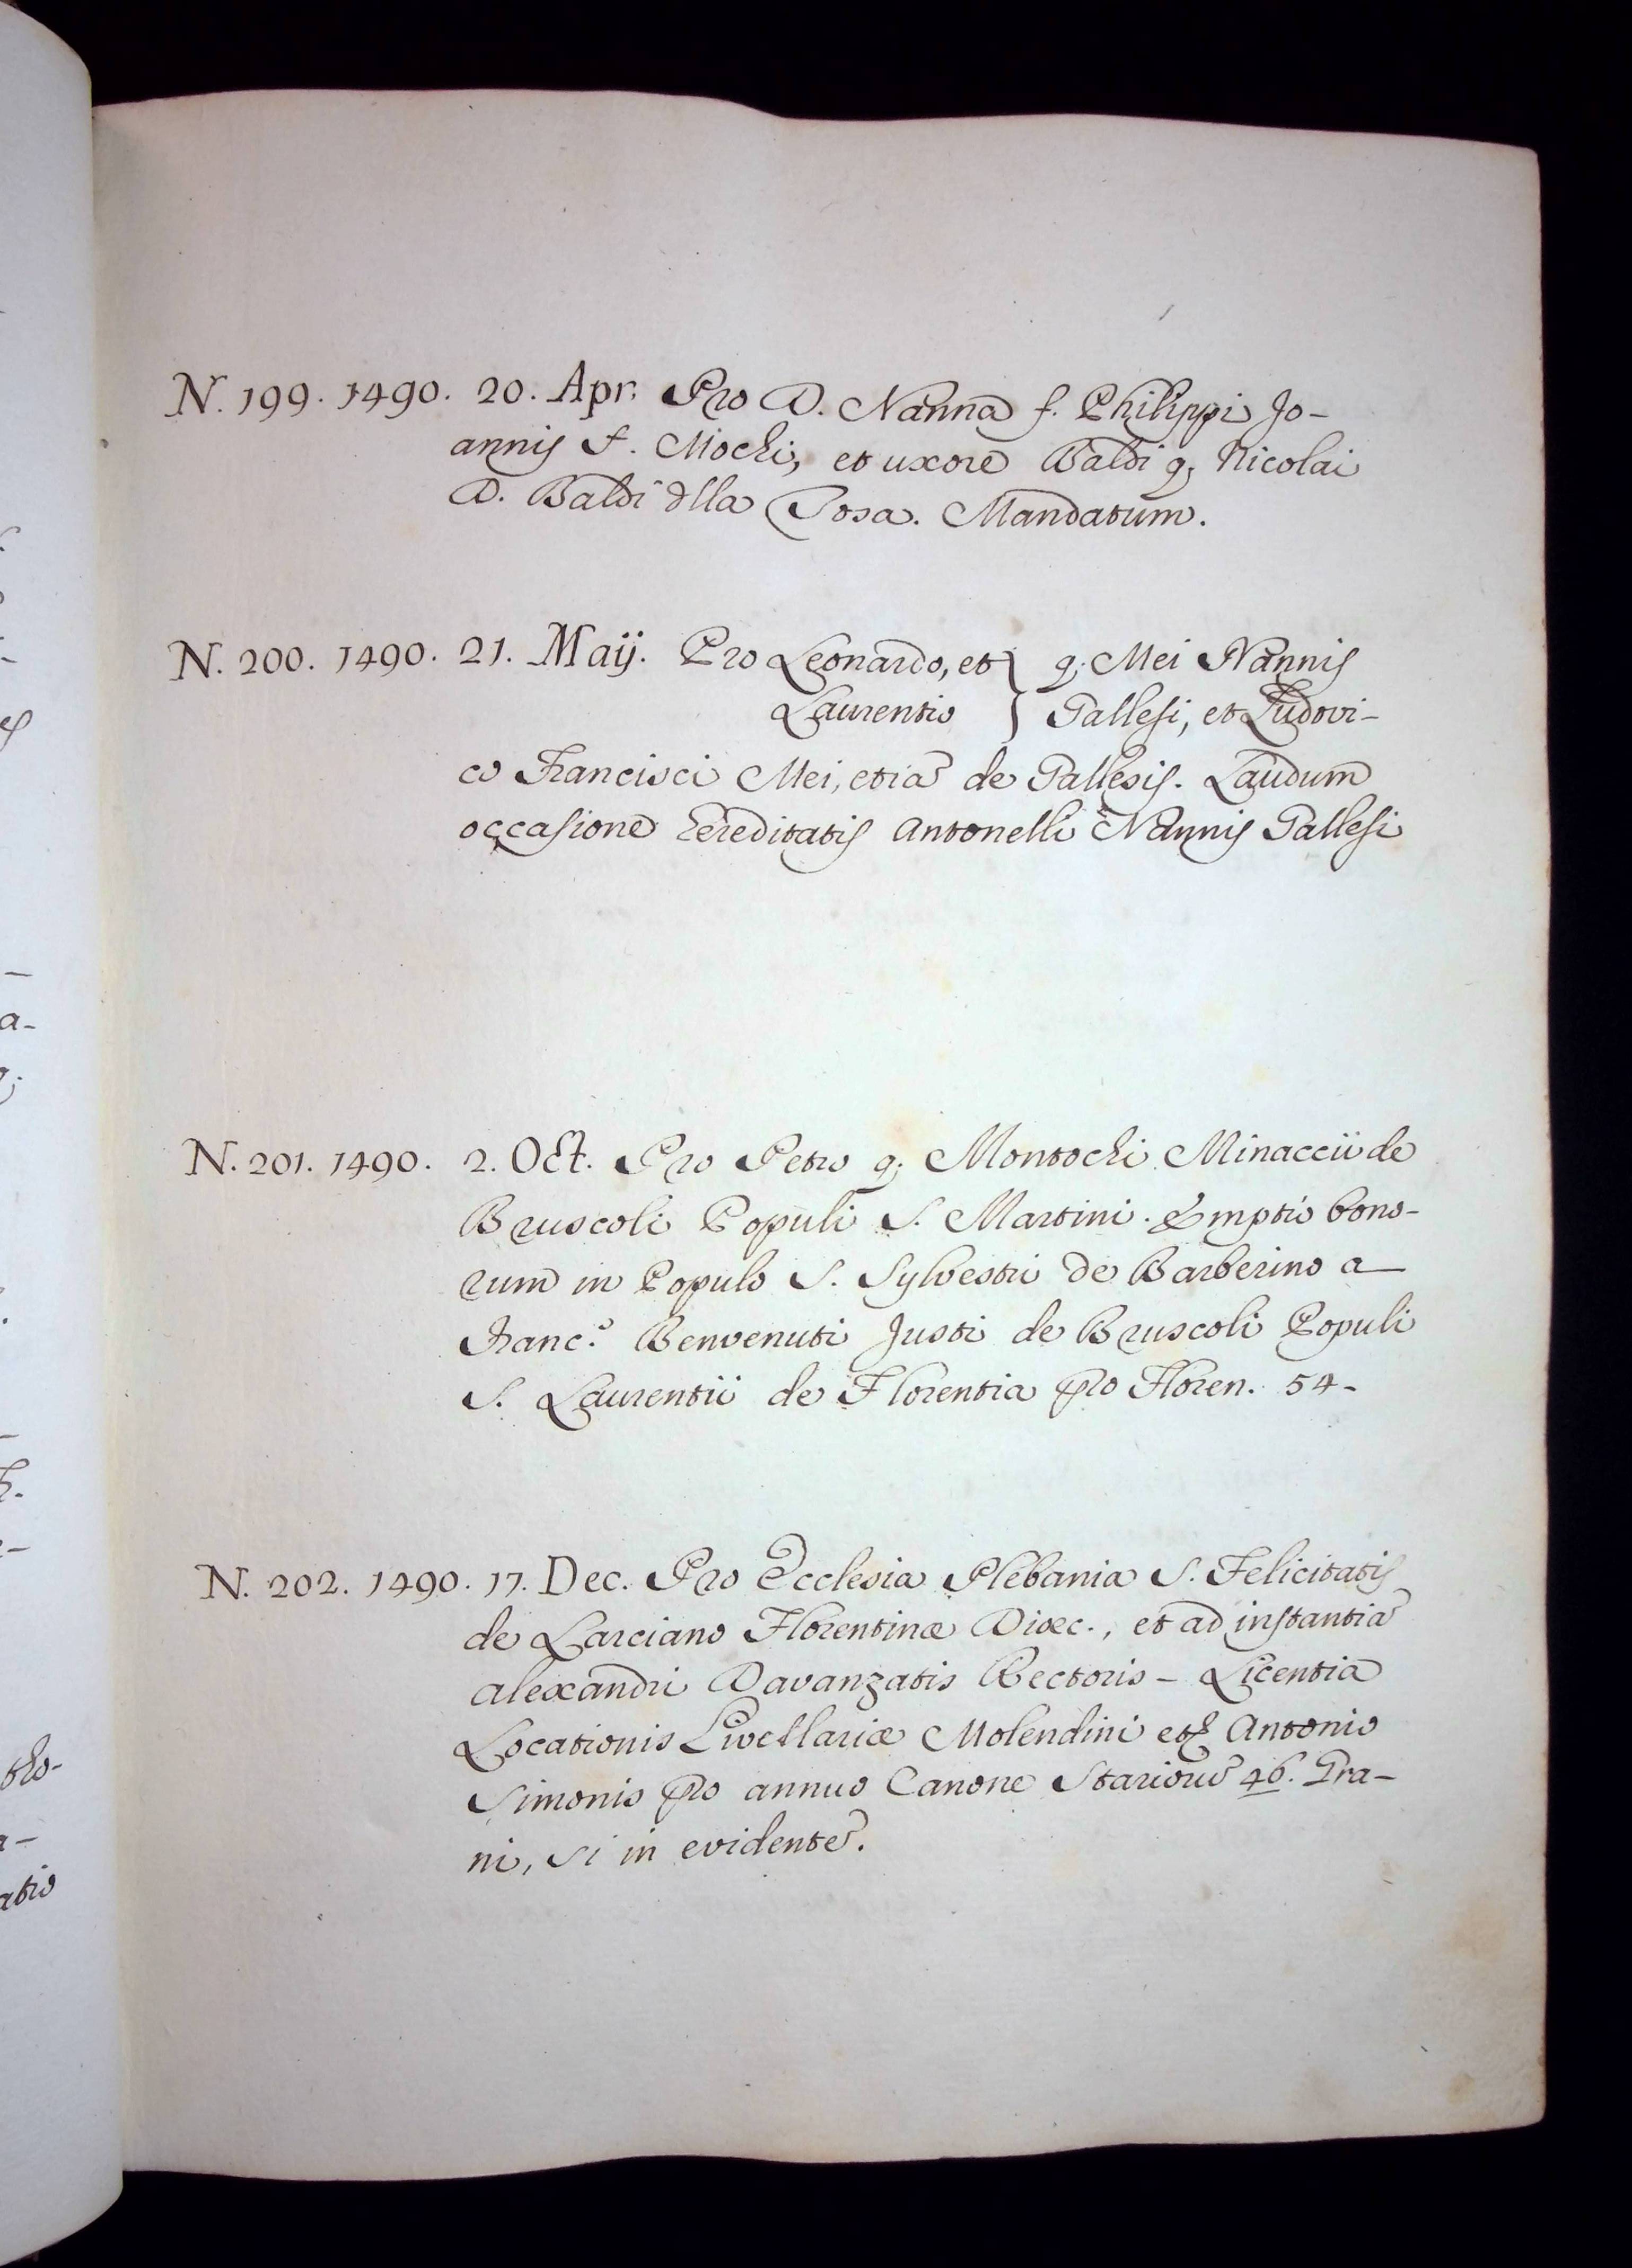 N. 199. 1490. 20. Apr. Pro D. Nanna f. Philippi Jo-
annis S. Mochi, et uxore Baldi q; Nicolai
D. Baldi dlla Tosa. Mandatum.
N. 200. 1490. 21. Maij. Pro Leonardo, et } q; Mei Nannis
Laurentio } Gallesi, et Ludovi-
co Francisci Mei, etia de Gallesis. Laudum
occasione hereditatis Antonelli Nannis Gallesi
N. 201. 1490. 2. Oct. Pro Petro q; Montochi Minaccii de
Bruscoli Populi S. Martini. Emptio bono-
rum in Populo S. Sylvestri de Barberino a
Franc.o Benvenuti Justi de Bruscoli Populi
S. Laurentii de Florentia pro Floren. 54-
N. 202. 1490. 17. Dec. Pro Ecclesia Plebania S. Felicitatis
de Larciano Florentinæ Diœc., et ad instantia
Alexandri Davanzatis Rectoris - Licentia
Locationis Livellariæ Molendini Antonio
Simonis pro annuo Canone Starioru 46. Gra-
ni, si in evidente.